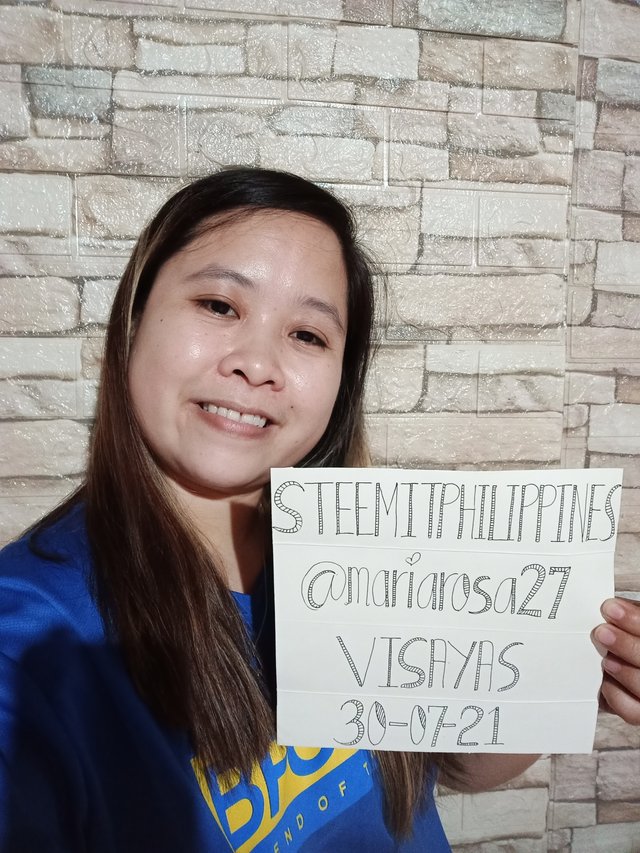 STEEMITPHILIPPINES
@mariarosa27
VISAYAS
30-07-21
END OF T